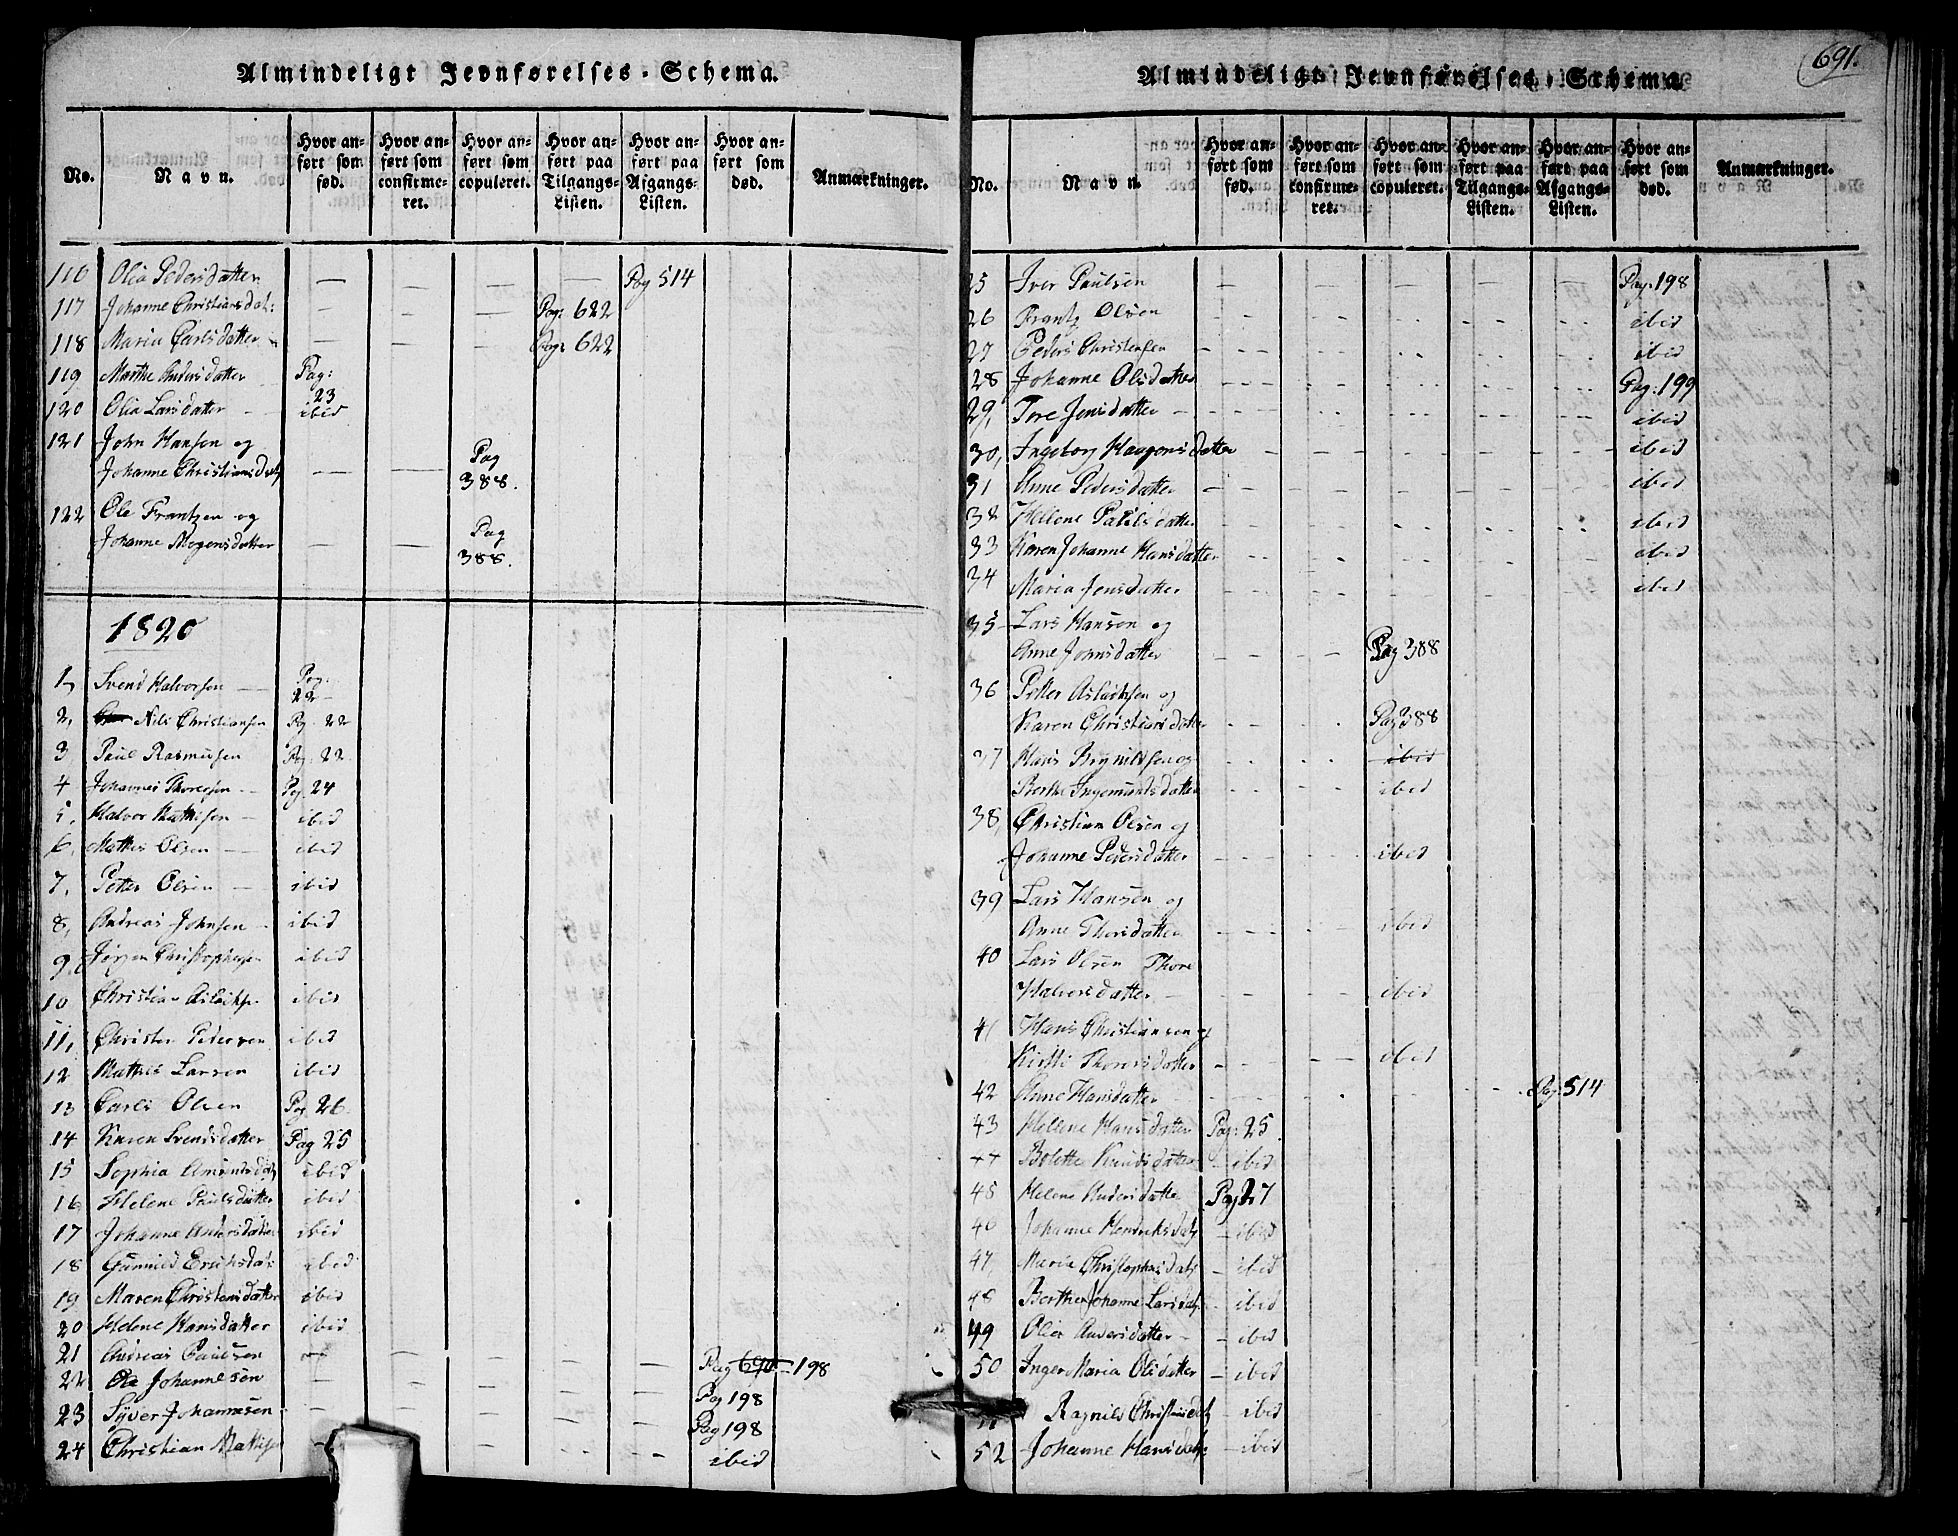 Almindeligt Jevnførelses-Schema.
No. Navn. Hvor anført som fød. Hvor anført som confirmeret. Hvor anført som copuleret. Hvor anført paa Tilgangs-Listen. Hvor anført paa Afgangs-Listen. Hvor anført som død. Anmærkninger.
116 Olia Pedersdatter — — — — Pag 514
117 Johanne Christiansdat: — — — Pag: 622
118 Maria Carlsdatter — — — Pag: 622
119 Marthe Andersdatter Pag: 23
120 Olia Larsdatter — ibid
121 John Hansen og
Johanne Christiansdat — — Pag 388.
122 Ole Frantzen og
Johanne Mogensdatter — — Pag 388.
1820
1, Svend Halvorsen — Pag: 22
2, Nils Christiansen Pag. 22
3 Paul Rasmusen Pag. 22
4 Johannes Thoresen — Pag. 24
5, Halvor Mathisen — ibid
6, Mathis Olsen — ibid
7, Petter Olsen — ibid
8, Andreas Johnsen — ibid
9, Jørgen Christophersen ibid
10 Christian Aslachs. ibid
11, Christen Pedersen ibid
12 Mathis Larsen ibid
13 Carls Olsen Pag 26
14 Karen Svendsdatter Pag 25
15 Sophia Amundsdat ibid
16 Helene Paulsdatter ibid
17 Johanne Andersdatter ibid
18 Gunnild Erichsdat: ibid
19 Maren Christensdatter ibid
20 Helene Hansdatter ibid
21 Andreas Paulsen — — — — — Pag 690 198
22 Ole Johannesen — — — — — Pag 198
23 Syver Johannesen — — — — — Pag 198
24 Christian Mathis — — — ibid
691.
Almindeligt Jevnførelses-Schema
No. Navn. Hvor anført som fød. Hvor anført som confirmeret. Hvor anført som copuleret. Hvor anført paa Tilgangs-Listen. Hvor anført paa Afgangs-Listen. Hvor anført som død. Anmærkninger.
25 Iver Paulsen — — — — — Pag. 198
26 Frantz Olsen ibid
27 Peders Christensen ibid
28 Johanne Olsdatter Pag. 199
29, Tore Jensdatter — ibid
30, Ingeborg Haagensdatter ibid
31 Anne Pedersdatter ibid
32 Hellene Palisdatter ibid
33 Karen Johanne Hansdatter ibid
34 Maria Jensdatter ibid
35 Lars Hansen og
Anne Johnsdatter Pag 388
36 Petter Aslachsen og
Karen Christiansdatter Pag 388
37 Hans Brynildsen og ibid
Berthe Ingemundsdatter ibid
38, Christian Olsen og
Johanne Pedersdatter ibid
39 Lars Hansen og
Anne Thorsdatter ibid
40 Lars Olsen Thore
Halvorsdatter — ibid
41 Hans Christiansen og
Kirsti Thoresdatter ibid
42 Anne Hansdatter Pag. 514
43 Hellene Hansdatter Pag: 25
44 Bolette Knudsdatter — ibid
45 Helene Andersdatter Pag 27
46 Johanne Hendriksdat — ibid
47, Maria Christophersdat — ibid
48 Berthe Johanne Larsdat — ibid
49 Olia Andersdatter — ibid
50 Inger Maria Olsdatter — ibid
51 Ragnild Christiansdat — ibid
52 Johanne Hansdat — ibid